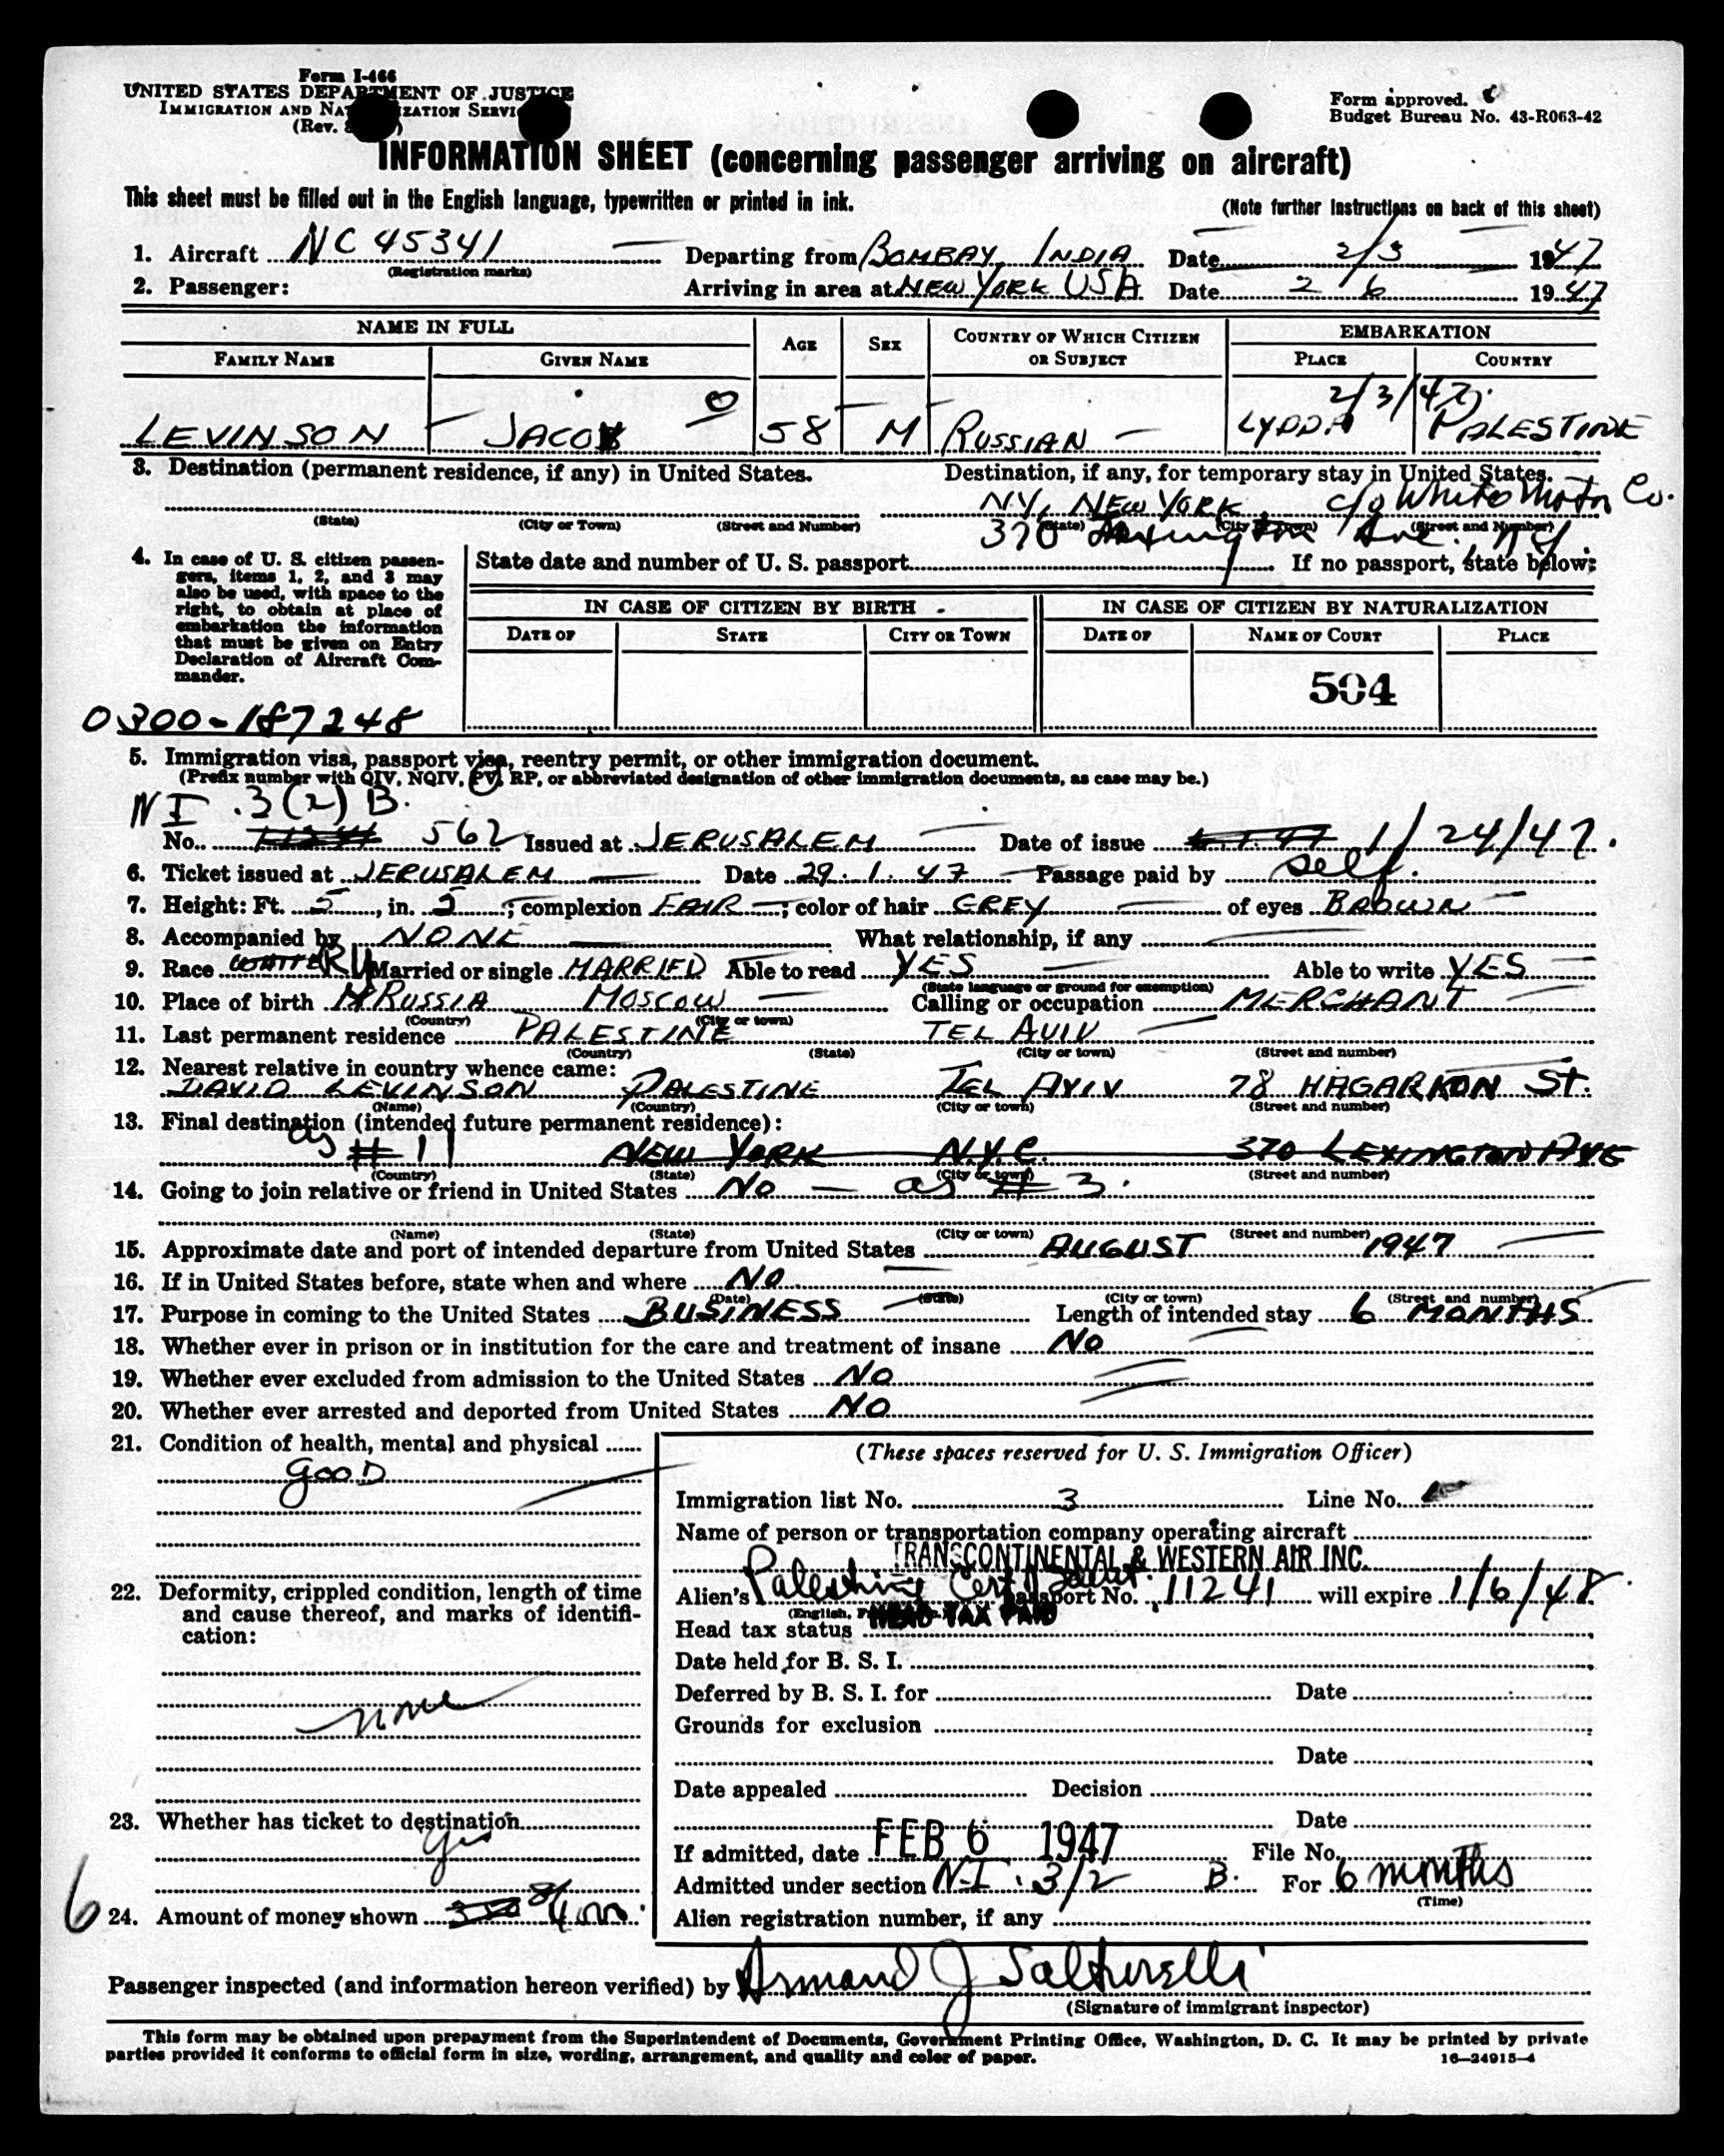 Form I-466
UNITED STATES DEPARTMENT OF JUSTICE
IMMIGRATION AND NATURALIZATION SERVICE
(Rev.
Form approved.
Budget Bureau No. 43-R063-42
INFORMATION SHEET (concerning passenger arriving on aircraft)
This sheet must be filled out in the English language, typewritten or printed in ink.
(Note further instructions on back of this sheet)
1. Aircraft NC 45341 Departing from BOMBAY, INDIA Date 2/3 1947
(Registration marks)
2. Passenger: Arriving in area at NEW YORK USA Date 2 6 1947
NAME IN FULL AGE SEX COUNTRY OF WHICH CITIZEN OR SUBJECT EMBARKATION
FAMILY NAME GIVEN NAME PLACE COUNTRY
2/3/47.
LEVINSON JACOB 0 58 M RUSSIAN LYDDA PALESTINE
3. Destination (permanent residence, if any) in United States. Destination, if any, for temporary stay in United States.
N.Y. NEW YORK c/o White Motor Co.
(State) (City or Town) (Street and Number) (State) (City or Town) (Street and Number)
370 Lexington Ave. N.Y.
4. In case of U. S. citizen passengers, items 1, 2, and 3 may also be used, with space to the right, to obtain at place of embarkation the information that must be given on Entry Declaration of Aircraft Commander.
State date and number of U. S. passport If no passport, state below:
IN CASE OF CITIZEN BY BIRTH IN CASE OF CITIZEN BY NATURALIZATION
DATE OF STATE CITY OR TOWN DATE OF NAME OF COURT PLACE
504
0300-187248
5. Immigration visa, passport visa, reentry permit, or other immigration document.
(Prefix number with QIV, NQIV, PV, RP, or abbreviated designation of other immigration documents, as case may be.)
NI .3(2)B.
No. 11241 562 Issued at JERUSALEM Date of issue 1/24/47.
6. Ticket issued at JERUSALEM Date 29.1.47 Passage paid by self.
7. Height: Ft. 5, in. 5; complexion FAIR; color of hair GREY of eyes BROWN
8. Accompanied by NONE What relationship, if any
9. Race WHITE RU Married or single MARRIED Able to read YES Able to write YES
(State language or ground for exemption)
10. Place of birth RUSSIA MOSCOW Calling or occupation MERCHANT
(Country) (City or town)
11. Last permanent residence PALESTINE TEL AVIV
(Country) (State) (City or town) (Street and number)
12. Nearest relative in country whence came:
DAVID LEVINSON PALESTINE TEL AVIV 78 HAGARKON ST.
(Name) (Country) (City or town) (Street and number)
13. Final destination (intended future permanent residence):
as # 11 NEW YORK N.Y.C. 370 LEXINGTON AVE
(Country) (State) (City or town) (Street and number)
14. Going to join relative or friend in United States No — as # 3.
(Name) (State) (City or town) (Street and number)
15. Approximate date and port of intended departure from United States AUGUST 1947
16. If in United States before, state when and where NO
(Date) (State) (City or town) (Street and number)
17. Purpose in coming to the United States BUSINESS Length of intended stay 6 MONTHS
18. Whether ever in prison or in institution for the care and treatment of insane NO
19. Whether ever excluded from admission to the United States NO
20. Whether ever arrested and deported from United States NO
21. Condition of health, mental and physical
GOOD
22. Deformity, crippled condition, length of time and cause thereof, and marks of identification:
none
23. Whether has ticket to destination
yes
6
24. Amount of money shown
(These spaces reserved for U. S. Immigration Officer)
Immigration list No. 3 Line No.
Name of person or transportation company operating aircraft
TRANSCONTINENTAL & WESTERN AIR INC.
Alien's Palestine Cert. Passport No. 11241 will expire 1/6/48.
Head tax status HEAD TAX PAID
Date held for B. S. I.
Deferred by B. S. I. for Date
Grounds for exclusion
Date
Date appealed Decision
Date
If admitted, date FEB 6 1947 File No.
Admitted under section N-I. 3/2 B. For 6 months
(Time)
Alien registration number, if any
Passenger inspected (and information hereon verified) by Armand J Salturelli
(Signature of immigrant inspector)
This form may be obtained upon prepayment from the Superintendent of Documents, Government Printing Office, Washington, D. C. It may be printed by private
parties provided it conforms to official form in size, wording, arrangement, and quality and color of paper.
16—24915-4